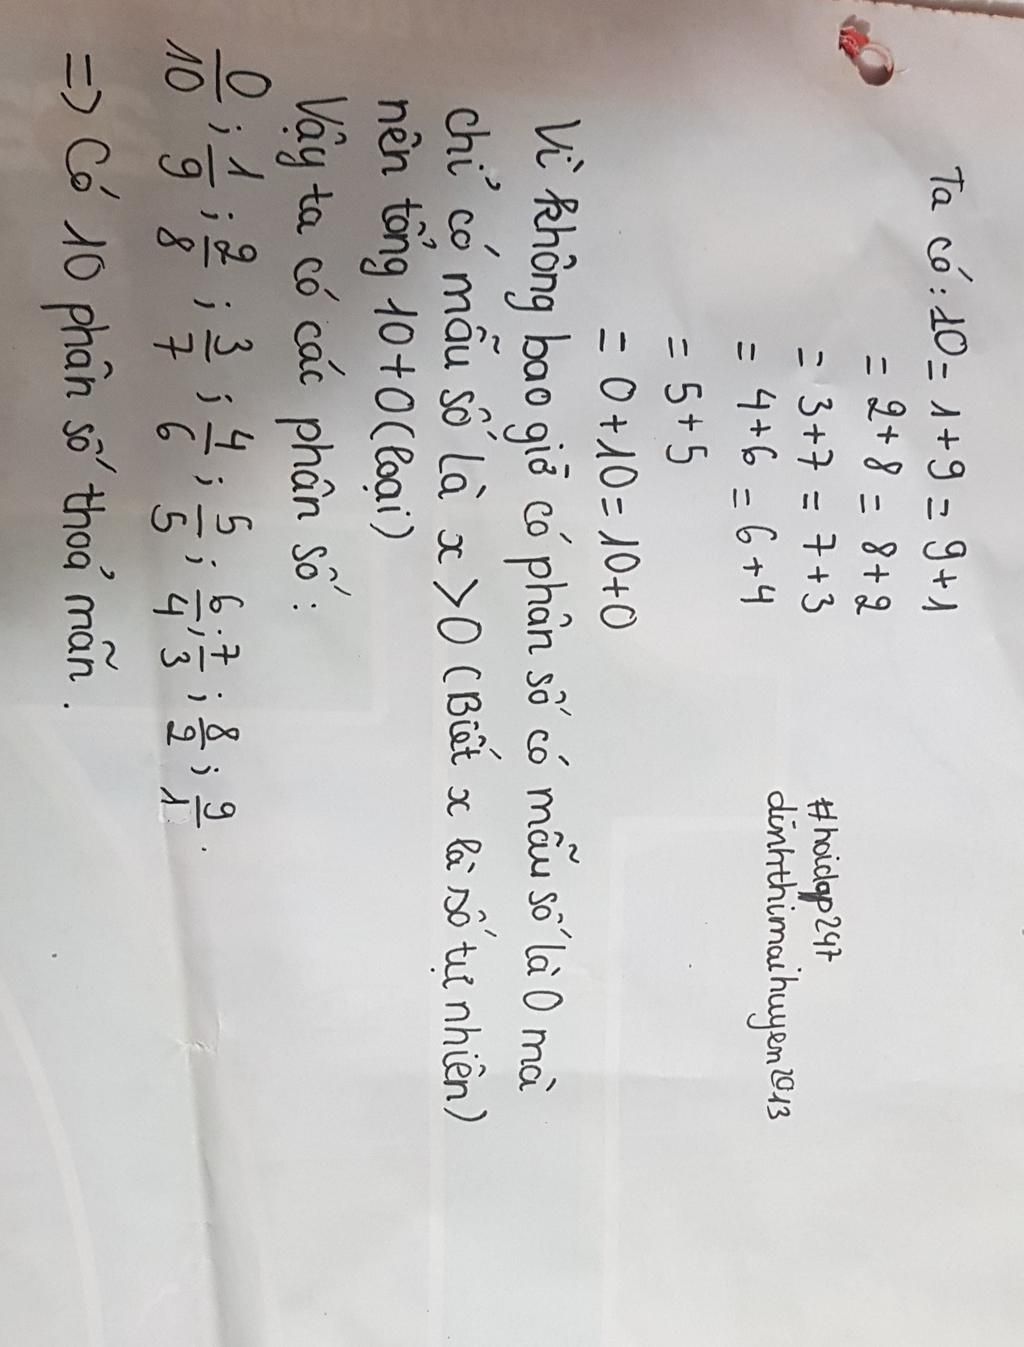 Ta có: 10 = 1+9 = 9+1
= 2+8 = 8+2
= 3+7 = 7+3
= 4+6 = 6+4
= 5+5
= 0+10 = 10+0
#hoidap247
dinhthimaihuyen2013
Vì không bao giờ có phân số có mẫu số là 0 mà
chỉ có mẫu số là x > 0 (Biết x là số tự nhiên)
nên tổng 10+0 (loại)
Vậy ta có các phân số:
0/10 ; 1/9 ; 2/8 ; 3/7 ; 4/6 ; 5/5 ; 6/4 ; 7/3 ; 8/2 ; 9/1 .
=> Có 10 phân số thoả mãn.